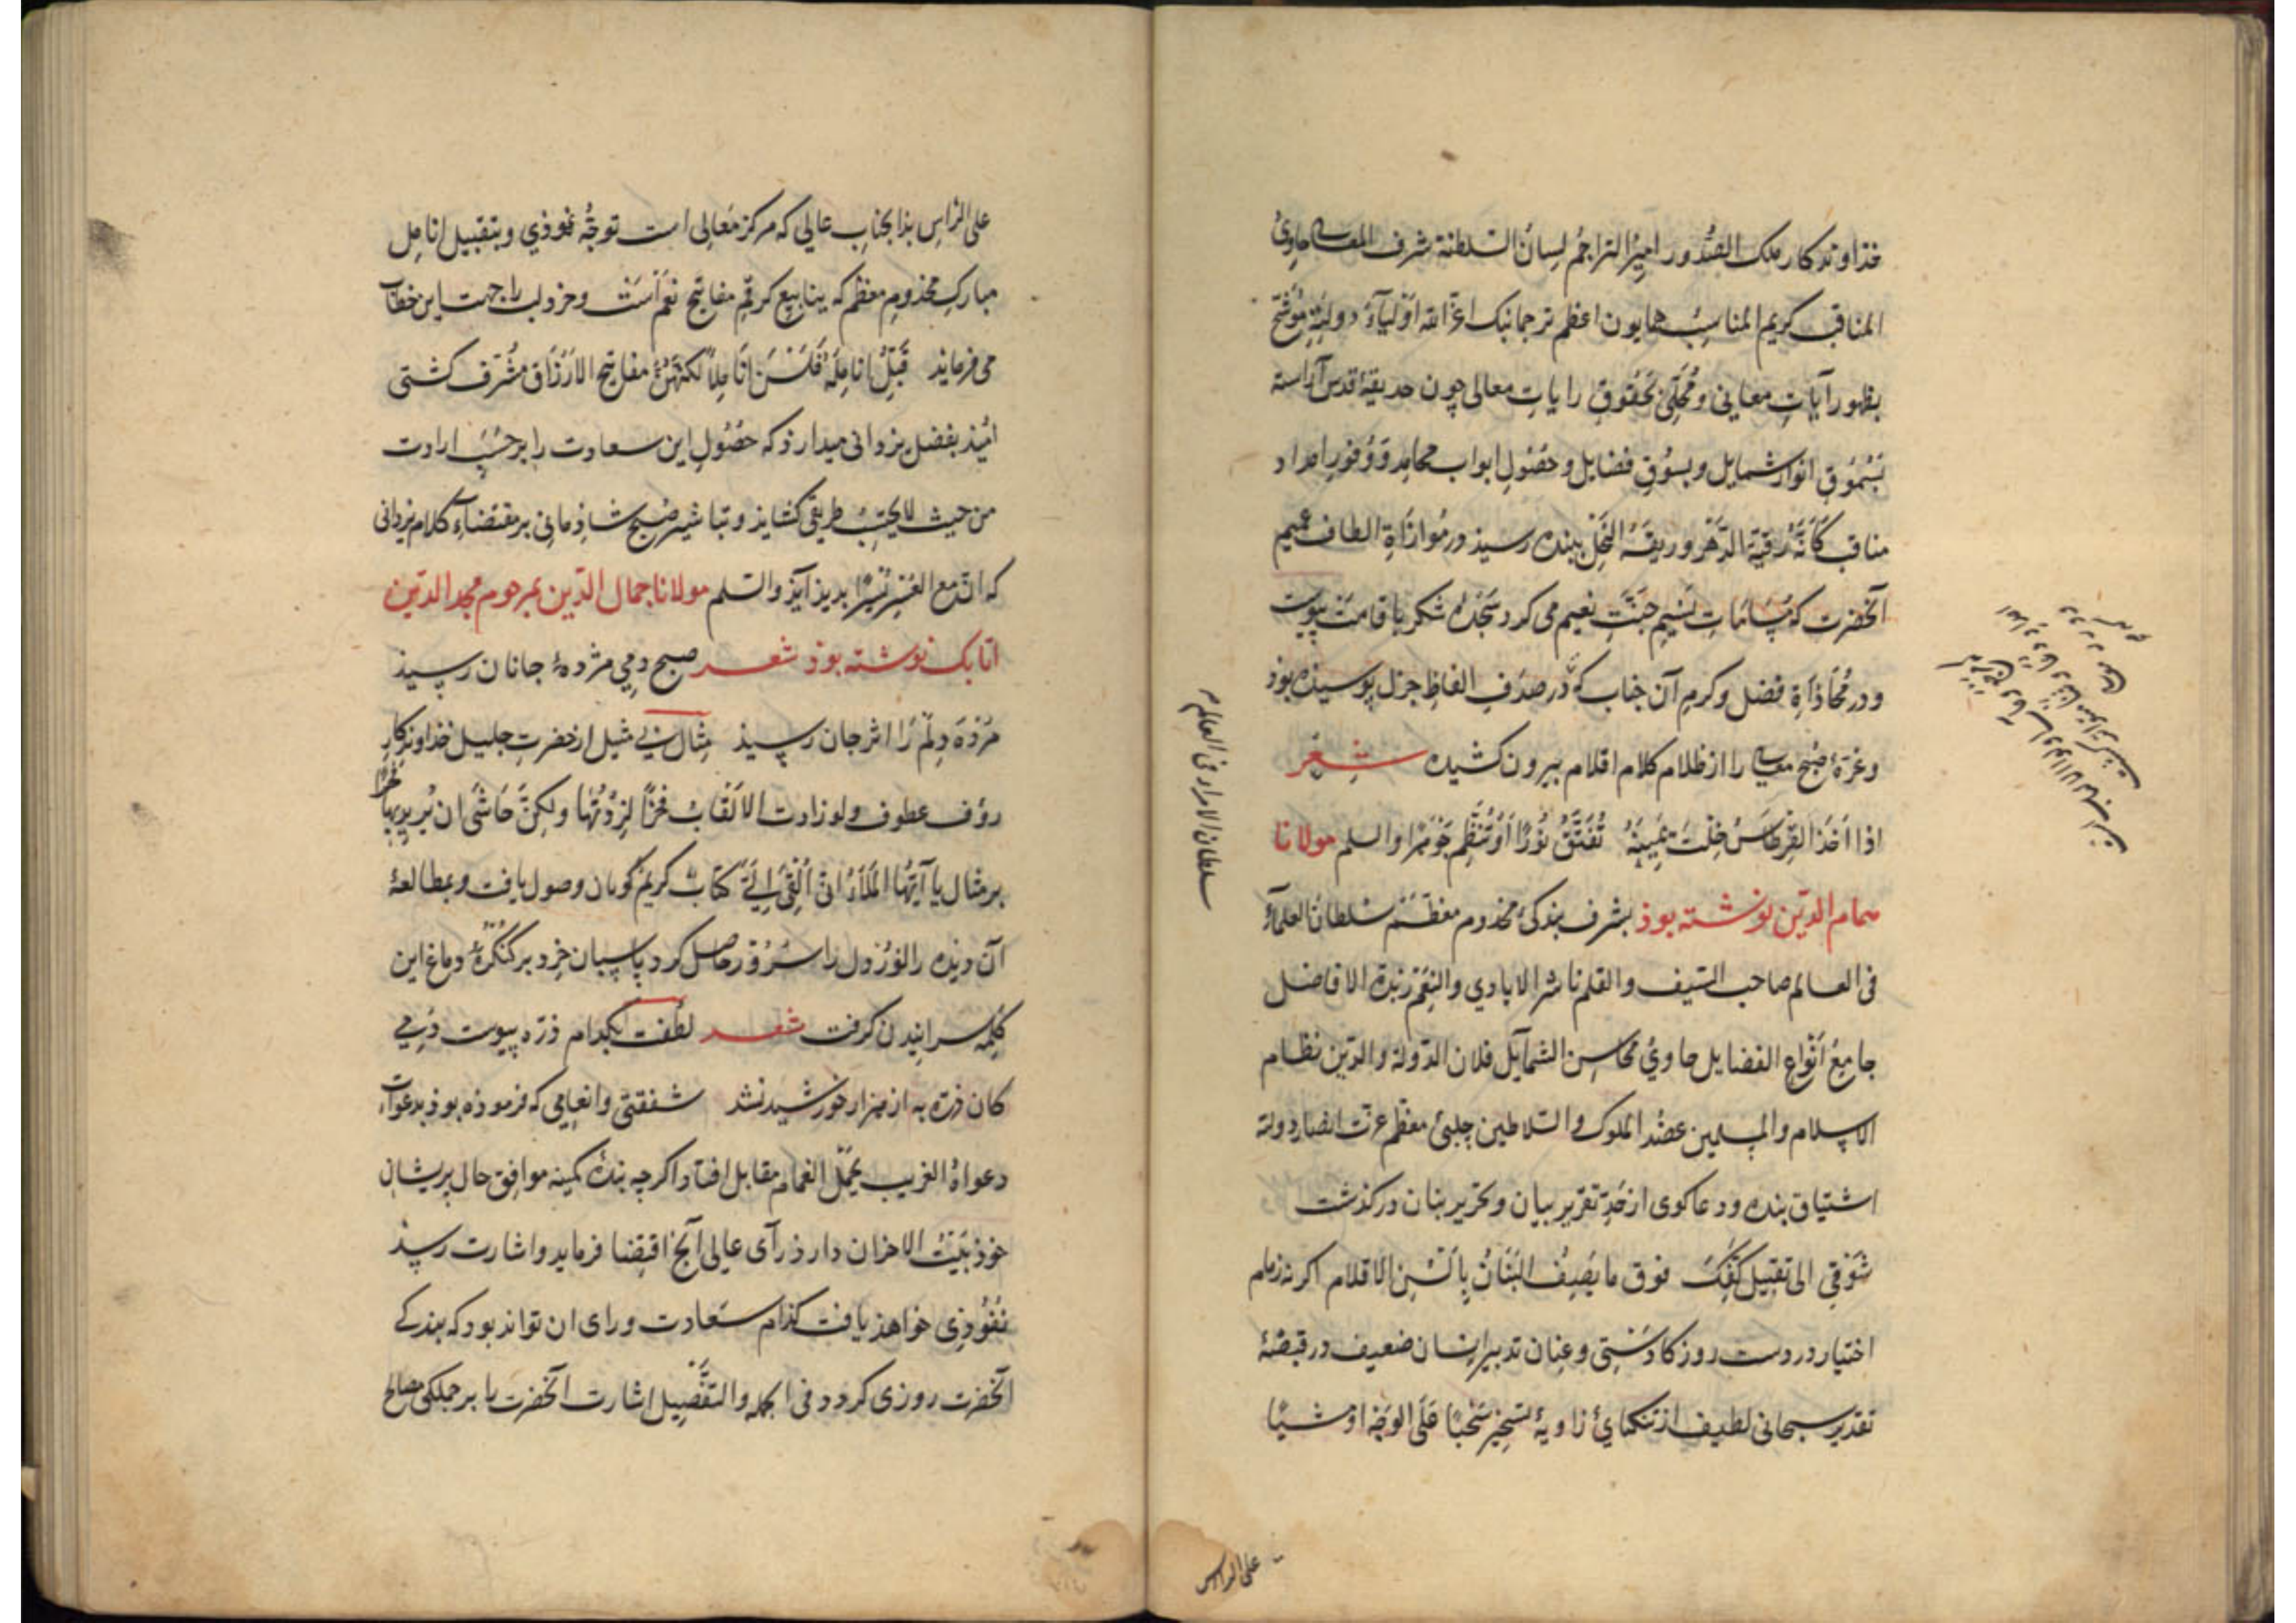 خذاوندکار ملک الصدور امیر التراجم لسان السلطنة شرف المعالی حاوی
المناقب کریم المناسب همایون اعظم ترجمانبک اعز الله اولیاء دولته موشح
بظهور آیات معانی و محلی بخفوق رایات معالی چون حدیقهٔ قدس آراسته
بسموق انوار شمایل و بسوق فضایل و حصول ابواب محامد و وفور امداد
مناقب کانه رقیة الدهر و ریقة النحل ببنده رسیذ و در موازاة الطاف عمیم
آنحضرت که نسیم جنت نعیم می کرد سجدهٔ شکر باقامت پیوست
و در محاذاة فضل و کرم آن جناب که در صدف الفاظ جزل پوسیده بوذ
و غرهٔ صبح معالی را از ظلام کلام اقلام بیرون کشیده شعر
اذا اخذ القرطاس خلت یمینه تفتق نورا او تنظم جوهرا والسلم مولانا
حسام الدین نوشته بوذ بشرف بندکی مخذوم معظم سلطان العلماء
فی العالم صاحب السیف والقلم ناشر الایادی والنعم زبدة الافاضل
جامع انواع الفضایل حاوی محاسن الشمایل فلان الدولة والدین نظام
الاسلام والمسلمین عضد الملوک والسلاطین چلبی معظم عزت انصار دولته
اشتیاق بنده و دعاکوی از حد تقریر بیان و تحریر بنان درکذشت
شوقی الی تقبیل کفک فوق ما یصف البنان بالسن الاقلام اکر نه زمام
اختیار در دست روزکار دستی و عنان تدبیر انسان ضعیف در قبضهٔ
تقدیر سبحانی لطیف از تنکنای زاویهٔ سحبا علی الوجه او مشیا
سلطان الامراء فی العالم
علی الراس
علی الراس بذا بجناب عالی که مرکز معالی است توجه نموذی و بتقبیل انامل
مبارک مخذوم معظم که ینابیع کرم مفاتیح نعم است و خرد لب را جهت این خطاب
می فرماید قبل انامله فلسن اناملا لکنهن مفاتیح الارزاق مشرف کشتی
امیذ بفضل یزدانی میدارذ که حصول این سعادت را بر حسب ارادت
من حیث لا یحتسب طریقی کشایذ و تباشیر صبح شاذمانی بر مقتضاء کلام یزدانی
که ان مع العسر یسرا بدیذ آیذ والسلم مولانا جمال الدین بمرحوم مجد الدین
اتابک نوشته بوذ شعر صبح دمی مژدهٔ جانان رسیذ
مرده دلم را اثر جان رسیذ مثال بی مثیل از حضرت جلیل خذاوندکار
رؤف عطوف ولو زادت الالقاب فخرا لزدتها ولکن حاشی ان یرید بها فخرا
بر مثال یا ایها الملاء انی القی الی کتاب کریم کویان وصول یافت و بمطالعهٔ
آن دیذه را نور و دل را سرور حاصل کرد پاسبان خرد بر کنکرهٔ دماغ این
کلمه سراییدن کرفت شعر لطفت بکدام ذره پیوست دمی
کان ذره به از هزار خورشید نشد شفقتی و انعامی که فرموذه بوذ بدعوات
دعواة الغریب یحمل الغمام مقابل افتاد اکرچه بندهٔ کمینه موافق حال پریشان
خوذ بیت الاحزان دارذ رآی عالی آنچ اقتضا فرماید و اشارت رسذ
نفوذی خواهذ یافت کذام سعادت ورای ان تواند بود که بندکی
آنحضرت روزی کردد فی الجمله والتفضیل اشارت آنحضرت را بر جملکی مصالح